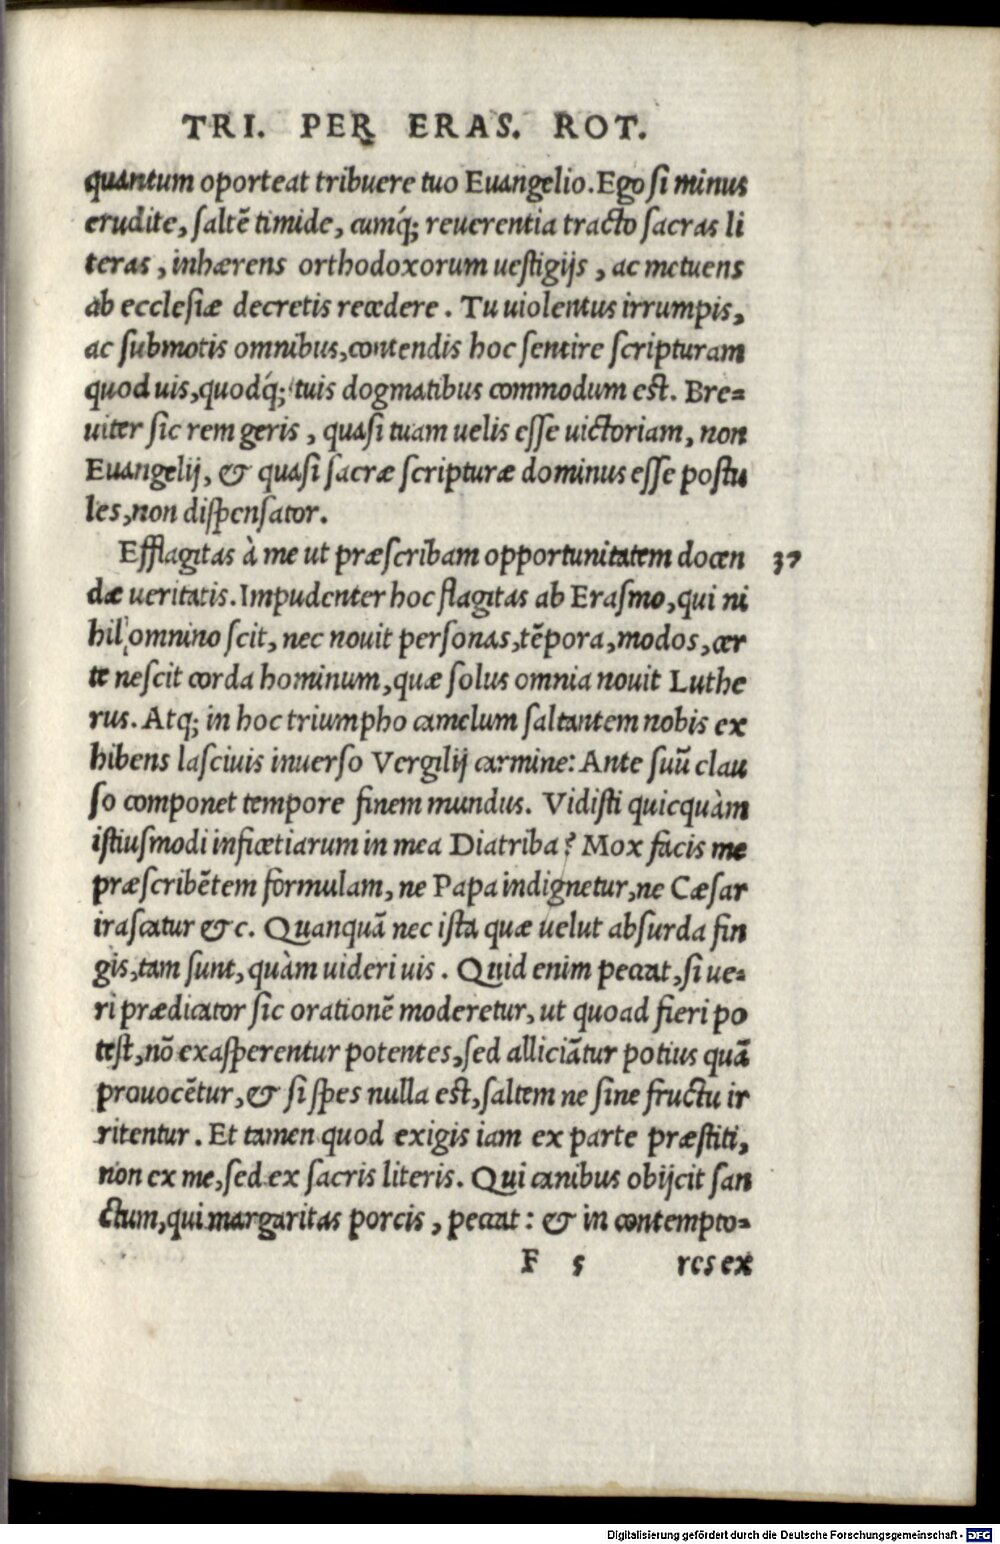 TRI. PER ERAS. ROT.
quantum oporteat tribuere tuo Euangelio. Ego ſi minus
erudite, ſaltē timide, cumq́; reuerentia tracto ſacras li
teras, inhærens orthodoxorum ueſtigijs, ac metuens
ab eccleſiæ decretis recedere. Tu uiolentus irrumpis,
ac ſubmotis omnibus, contendis hoc ſentire ſcripturam
quod uis, quodq́; tuis dogmatibus commodum eſt. Bre=
uiter ſic rem geris, quaſi tuam uelis eſſe uictoriam, non
Euangelij, & quaſi ſacræ ſcripturæ dominus eſſe poſtu
les, non diſpenſator.
Efflagitas à me ut præſcribam opportunitatem docen 37
dæ ueritatis. Impudenter hoc flagitas ab Eraſmo, qui ni
hil omnino ſcit, nec nouit perſonas, tēpora, modos, cer
te neſcit corda hominum, quæ ſolus omnia nouit Luthe
rus. Atq; in hoc triumpho camelum ſaltantem nobis ex
hibens laſciuis inuerſo Vergilij carmine: Ante ſuū clau
ſo componet tempore finem mundus. Vidiſti quicquàm
iſtiuſmodi inficetiarum in mea Diatriba? Mox facis me
præſcribētem formulam, ne Papa indignetur, ne Cæſar
iraſcatur &c. Quanquā nec iſta quæ uelut abſurda fin
gis, tam ſunt, quàm uideri uis. Quid enim peccat, ſi ue=
ri prædicator ſic orationē moderetur, ut quoad fieri po
teſt, nō exaſperentur potentes, ſed alliciātur potius quā
prouocētur, & ſi ſpes nulla eſt, ſaltem ne ſine fructu ir
ritentur. Et tamen quod exigis iam ex parte præſtiti,
non ex me, ſed ex ſacris literis. Qui canibus obijcit ſan
ctum, qui margaritas porcis, peccat: & in contempto=
F 5 res ex
Digitalisierung gefördert durch die Deutsche Forschungsgemeinschaft - DFG